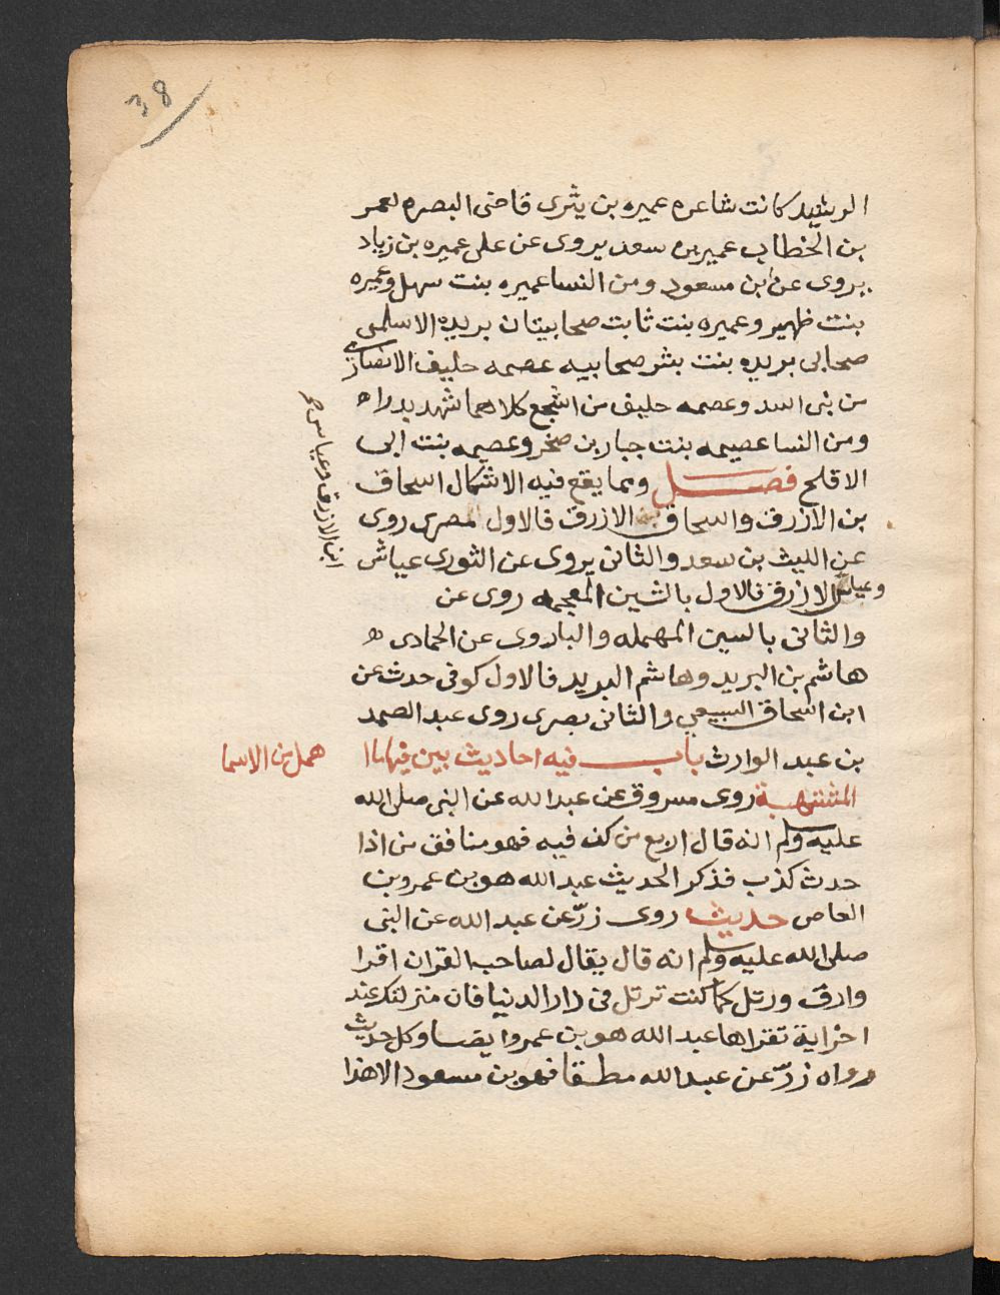 38
الرشيد كانت شاعره عميره بن يثرى قاضى البصره لعمر
بن الخطاب عميره بن سعد يروى عن على عميره بن زياد
يروى عن ابن مسعود ومن النسا عميره بنت سهل وعميره
بنت ظهير وعميره بنت ثابت صحابيتان بريده الاسلمى
صحابى بريده بنت بشر صحابيه عصمه حليف الانصار
من بنى اسد وعصمه حليف من اشجع كلاهما شهد بدرا ه
ومن النسا عصيمه بنت جبار بن صخر وعصيمه بنت ابى
الاقلح فصل ومما يقع فيه الاشكال اسحاق
بن الازرق واسحاق بن الازرق فالاول مصرى روى
عن الليث بن سعد والثانى يروى عن الثورى عياش
وعباس الازرق فالاول بالشين المعجمه روى عن
والثانى بالسين المهمله والبا روى عن الحمادى ه
ابن الازرق وعباس
هاشم بن البريد وهاشم البريد فالاول كوفى حدث عن
ابن اسحاق السبيعي والثانى بصرى روى عبد الصمد
بن عبد الوارث باب فيه احاديث بين فيها ما
همل من الاسما
المشتبهة روى مسروق عن عبد الله عن النبى صلى الله
عليه وسلم انه قال اربع من كن فيه فهو منافق من اذا
حدث كذب فذكر الحديث عبد الله هو بن عمرو بن
العاص حديث روى زرّ عن عبد الله عن النبى
صلى الله عليه وسلم انه قال يقال لصاحب القران اقرا
وارق ورتل كما كنت ترتل فى دار الدنيا فان منزلتك عند
اخر اية تقراها عبد الله هو بن عمرو ايضا وكل حديث
رواه زرّ عن عبد الله مطلقا فهو بن مسعود الا هذا